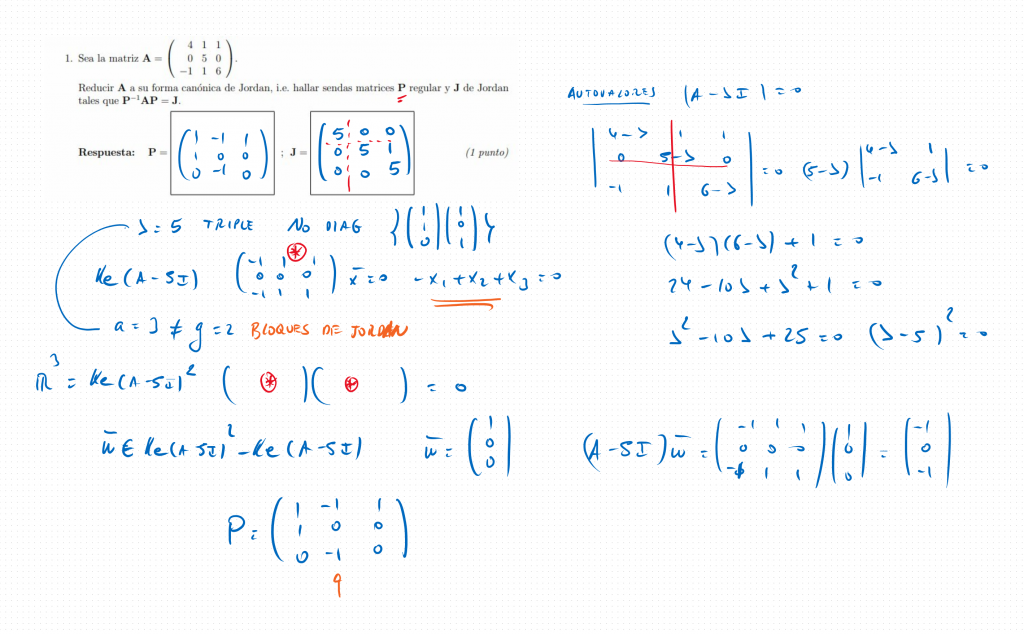 1. Sea la matriz A = ( 4 1 1 / 0 5 0 / −1 1 6 ).
Reducir A a su forma canónica de Jordan, i.e. hallar sendas matrices P regular y J de Jordan
tales que P⁻¹AP = J.
Respuesta: P = ( 1 -1 1 / 1 0 0 / 0 -1 0 ) ; J = ( 5 0 0 / 0 5 1 / 0 0 5 ) (1 punto)
AUTOVALORES |A - λI| = 0
| 4-λ 1 1 / 0 5-λ 0 / -1 1 6-λ | = 0 (5-λ) | 4-λ 1 / -1 6-λ | = 0
(4-λ)(6-λ) + 1 = 0
24 - 10λ + λ² + 1 = 0
λ² - 10λ + 25 = 0 (λ-5)² = 0
λ = 5 TRIPLE NO DIAG { ( 1 / 1 / 0 ) ( 1 / 0 / 1 ) }
Ke(A - 5I) ( -1 1 1 / 0 0 0 / -1 1 1 ) x̄ = 0 - x₁ + x₂ + x₃ = 0
*
a = 3 ≠ g = 2 BLOQUES DE JORDAN
ℝ³ = Ke(A - 5I)² ( * )( * ) = 0
w̄ ∈ Ke(A 5I)² - Ke(A - 5I) w̄ = ( 1 / 0 / 0 ) (A - 5I) w̄ = ( -1 1 1 / 0 0 0 / -1 1 1 ) ( 1 / 0 / 0 ) = ( -1 / 0 / -1 )
P = ( 1 -1 1 / 1 0 0 / 0 -1 0 )